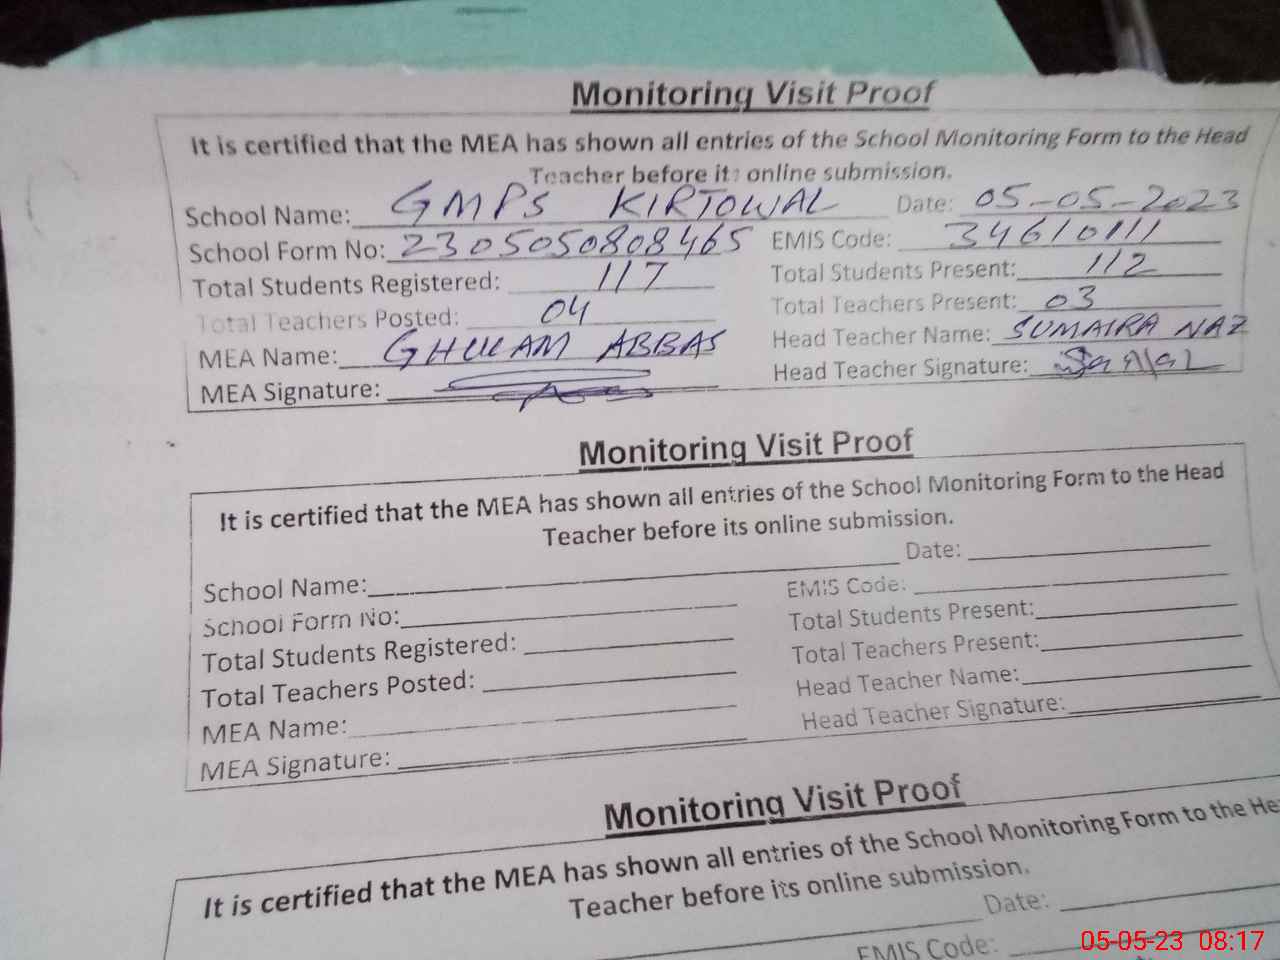 Monitoring Visit Proof
It is certified that the MEA has shown all entries of the School Monitoring Form to the Head
Teacher before its online submission.
School Name: GMPS KIRTOWAL Date: 05-05-2023
School Form No: 2305050808465 EMIS Code: 34610111
Total Students Registered: 117 Total Students Present: 112
Total Teachers Posted: 04 Total Teachers Present: 03
MEA Name: GHULAM ABBAS Head Teacher Name: SUMAIRA NAZ
MEA Signature: Head Teacher Signature:
Monitoring Visit Proof
It is certified that the MEA has shown all entries of the School Monitoring Form to the Head
Teacher before its online submission.
School Name: Date:
School Form No: EMIS Code:
Total Students Registered: Total Students Present:
Total Teachers Posted: Total Teachers Present:
MEA Name: Head Teacher Name:
MEA Signature: Head Teacher Signature:
Monitoring Visit Proof
It is certified that the MEA has shown all entries of the School Monitoring Form to the He
Teacher before its online submission.
Date:
EMIS Code:
05-05-23 08:17